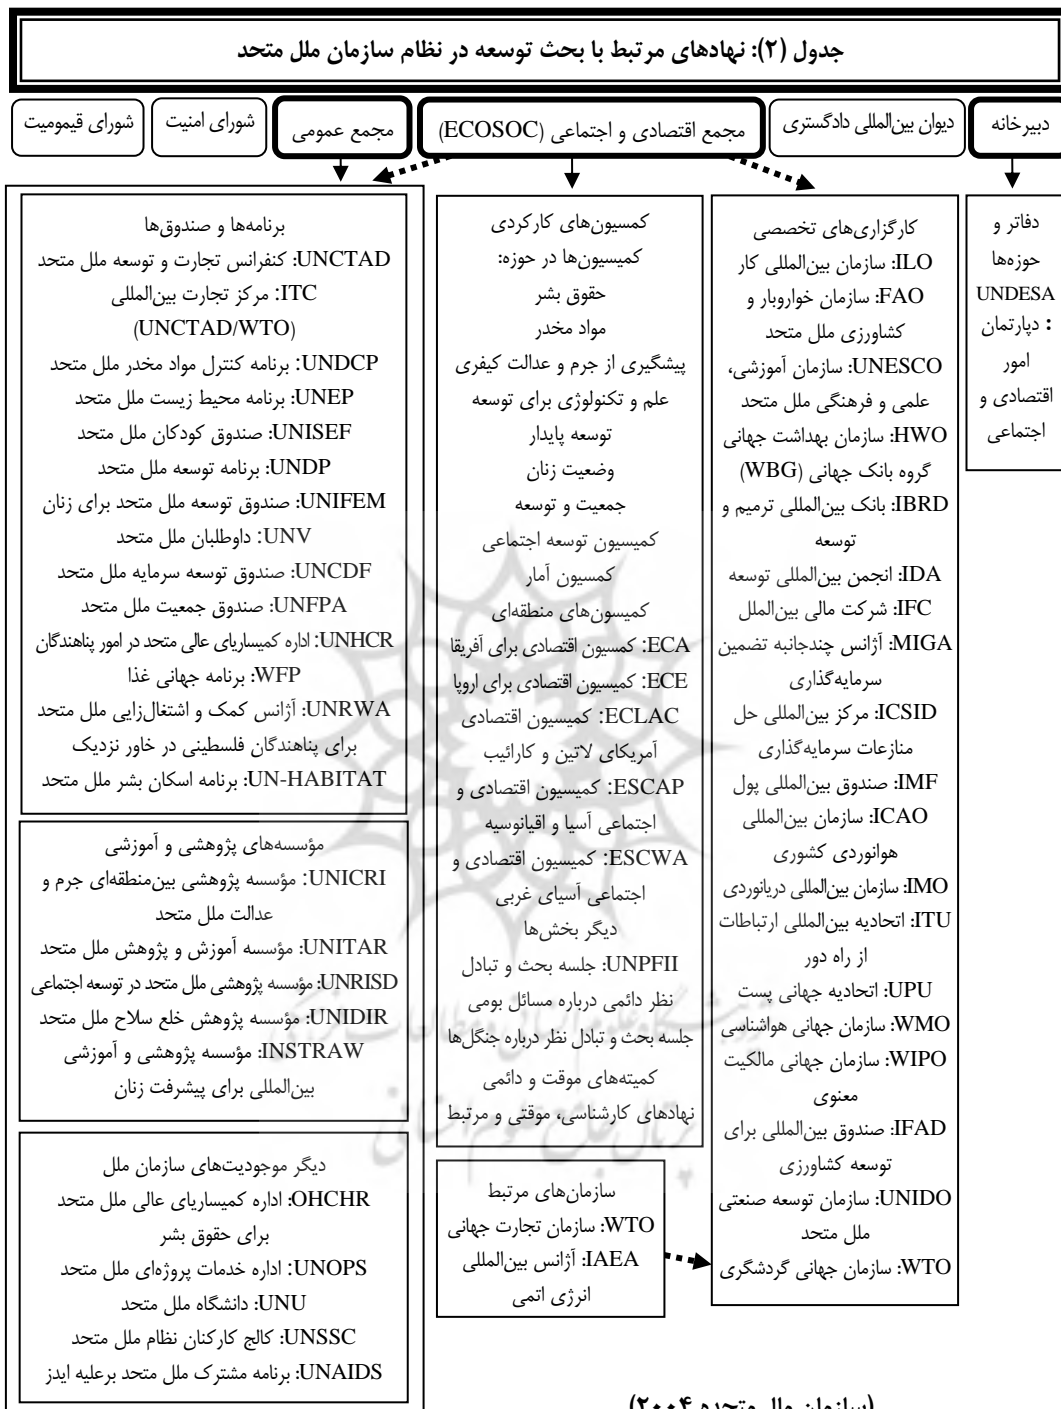 جدول (۲): نهادهای مرتبط با بحث توسعه در نظام سازمان ملل متحد
دبیرخانه
دیوان بین‌المللی دادگستری
مجمع اقتصادی و اجتماعی (ECOSOC)
مجمع عمومی
شورای امنیت
شورای قیمومیت
دفاتر و
حوزه‌ها
UNDESA
: دپارتمان
امور
اقتصادی و
اجتماعی
کارگزاری‌های تخصصی
ILO: سازمان بین‌المللی کار
FAO: سازمان خواروبار و
کشاورزی ملل متحد
UNESCO: سازمان آموزشی،
علمی و فرهنگی ملل متحد
HWO: سازمان بهداشت جهانی
گروه بانک جهانی (WBG)
IBRD: بانک بین‌المللی ترمیم و
توسعه
IDA: انجمن بین‌المللی توسعه
IFC: شرکت مالی بین‌الملل
MIGA: آژانس چندجانبه تضمین
سرمایه‌گذاری
ICSID: مرکز بین‌المللی حل
منازعات سرمایه‌گذاری
IMF: صندوق بین‌المللی پول
ICAO: سازمان بین‌المللی
هوانوردی کشوری
IMO: سازمان بین‌المللی دریانوردی
ITU: اتحادیه بین‌المللی ارتباطات
از راه دور
UPU: اتحادیه جهانی پست
WMO: سازمان جهانی هواشناسی
WIPO: سازمان جهانی مالکیت
معنوی
IFAD: صندوق بین‌المللی برای
توسعه کشاورزی
UNIDO: سازمان توسعه صنعتی
ملل متحد
WTO: سازمان جهانی گردشگری
کمسیون‌های کارکردی
کمیسیون‌ها در حوزه:
حقوق بشر
مواد مخدر
پیشگیری از جرم و عدالت کیفری
علم و تکنولوژی برای توسعه
توسعه پایدار
وضعیت زنان
جمعیت و توسعه
کمیسیون توسعه اجتماعی
کمسیون آمار
کمیسون‌های منطقه‌ای
ECA: کمسیون اقتصادی برای آفریقا
ECE: کمیسیون اقتصادی برای اروپا
ECLAC: کمیسیون اقتصادی
آمریکای لاتین و کارائیب
ESCAP: کمیسیون اقتصادی و
اجتماعی آسیا و اقیانوسیه
ESCWA: کمیسیون اقتصادی و
اجتماعی آسیای غربی
دیگر بخش‌ها
UNPFII: جلسه بحث و تبادل
نظر دائمی درباره مسائل بومی
جلسه بحث و تبادل نظر درباره جنگل‌ها
کمیته‌های موقت و دائمی
نهادهای کارشناسی، موقتی و مرتبط
سازمان‌های مرتبط
WTO: سازمان تجارت جهانی
IAEA: آژانس بین‌المللی
انرژی اتمی
برنامه‌ها و صندوق‌ها
UNCTAD: کنفرانس تجارت و توسعه ملل متحد
ITC: مرکز تجارت بین‌المللی
(UNCTAD/WTO)
UNDCP: برنامه کنترل مواد مخدر ملل متحد
UNEP: برنامه محیط زیست ملل متحد
UNISEF: صندوق کودکان ملل متحد
UNDP: برنامه توسعه ملل متحد
UNIFEM: صندوق توسعه ملل متحد برای زنان
UNV: داوطلبان ملل متحد
UNCDF: صندوق توسعه سرمایه ملل متحد
UNFPA: صندوق جمعیت ملل متحد
UNHCR: اداره کمیساریای عالی ملل متحد در امور پناهندگان
WFP: برنامه جهانی غذا
UNRWA: آژانس کمک و اشتغال‌زایی ملل متحد
برای پناهندگان فلسطینی در خاور نزدیک
UN-HABITAT: برنامه اسکان بشر ملل متحد
مؤسسه‌های پژوهشی و آموزشی
UNICRI: مؤسسه پژوهشی بین‌منطقه‌ای جرم و
عدالت ملل متحد
UNITAR: مؤسسه آموزش و پژوهش ملل متحد
UNRISD: مؤسسه پژوهشی ملل متحد در توسعه اجتماعی
UNIDIR: مؤسسه پژوهش خلع سلاح ملل متحد
INSTRAW: مؤسسه پژوهشی و آموزشی
بین‌المللی برای پیشرفت زنان
دیگر موجودیت‌های سازمان ملل
OHCHR: اداره کمیساریای عالی ملل متحد
برای حقوق بشر
UNOPS: اداره خدمات پروژه‌ای ملل متحد
UNU: دانشگاه ملل متحد
UNSSC: کالج کارکنان نظام ملل متحد
UNAIDS: برنامه مشترک ملل متحد برعلیه ایدز
(سازمان ملل متحده ۲۰۰۴)
پژوهشگاه علوم انسانی و مطالعات فرهنگی
پرتال جامع علوم انسانی